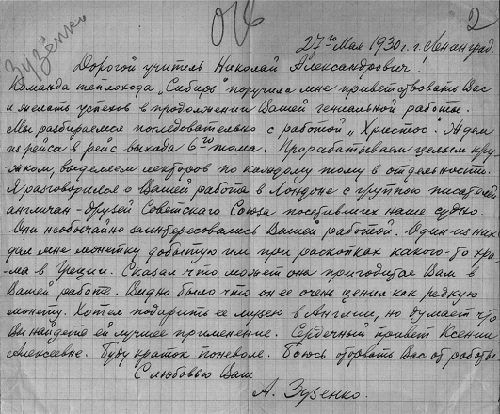 Зузенко
отв
2
27го Мая 1930 г. г. Ленинград.
Дорогой учитель Николай Александрович!
Команда теплохода „Сибирь" поручила мне приветствовать Вас
и желать успехов в продолжении Вашей гениальной работы.
Мы разбираемся последовательно с работой „Христос". Ждем
из рейса в рейс выхода 6го тома. Прорабатываем целым кру-
жком, выделяем лекторов по каждому тому в отдельности.
Я разговорился о Вашей работе в Лондоне с группою писателей
англичан - друзей Советского Союза посетивших наше судно.
Они необычайно заинтересовались Вашей работой. Один из них
дал мне монетку добытую им при раскопках какого-то хра-
ма в Греции. Сказал что может она пригодится Вам в
Вашей работе. Видно было что он ее очень ценил как редкую
монету. Хотел подарить ее музею в Англии, но думает что
Вы найдете ей лучшее применение. Сердечный привет Ксении
Алексеевне. Буду краток поневоле. Боюсь оторвать Вас от работы
С любовью Ваш
А. Зузенко.